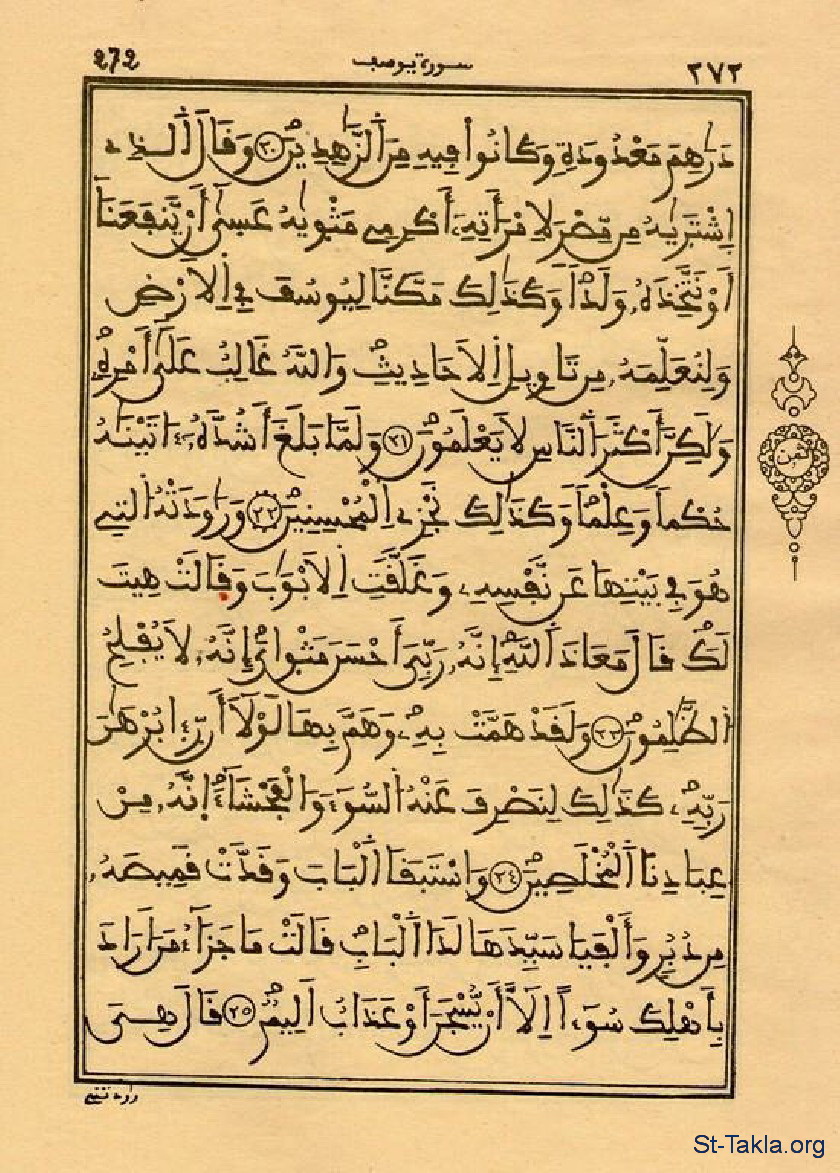 272 سورة يوسف ٢٧٢
دَرَٰهِمَ مَعْدُودَةٖ وَكَانُواْ فِيهِ مِنَ اَ۬لزَّٰهِدِينَۖ ٢٠ وَقَالَ اَ۬لذِے
اِ۪شْتَر۪يٰهُ مِن مِّصْرَ لِامْرَأَتِهِۦٓ أَكْرِمِے مَثْو۪يٰهُ عَس۪يٰٓ أَنْ يَّنفَعَنَآ
أَوْ نَتَّخِذَهُۥ وَلَداٗۖ وَكَذَٰلِكَ مَكَّنَّا لِيُوسُفَ فِے اِ۬لَارْضِ
وَلِنُعَلِّمَهُۥ مِن تَاوِيلِ اِ۬لَاحَادِيثِۖ وَاللَّهُ غَالِبٌ عَلَىٰٓ أَمْرِهِۦ
وَلَٰكِنَّ أَكْثَرَ اَ۬لنَّاسِ لَا يَعْلَمُونَۖ ٢١ وَلَمَّا بَلَغَ أَشُدَّهُۥٓ ءَاتَيْنَٰهُ
حُكْماٗ وَعِلْماٗۖ وَكَذَٰلِكَ نَجْزِے اِ۬لْمُحْسِنِينَۖ ٢٢ وَرَٰوَدَتْهُ اُ۬لتِے
هُوَ فِے بَيْتِهَا عَن نَّفْسِهِۦ وَغَلَّقَتِ اِ۬لَابْوَٰبَ وَقَالَتْ هِيتَ
لَكَۖ قَالَ مَعَاذَ اَ۬للَّهِۖ إِنَّهُۥ رَبِّيَ أَحْسَنَ مَثْوَايَۖ إِنَّهُۥ لَا يُفْلِحُ
اُ۬لظَّٰلِمُونَۖ ٢٣ وَلَقَدْ هَمَّتْ بِهِۦۖ وَهَمَّ بِهَا لَوْلَآ أَن رّ۪ء۪ا بُرْهَٰنَ
رَبِّهِۦۖ كَذَٰلِكَ لِنَصْرِفَ عَنْهُ اُ۬لسُّوٓءَ وَالْفَحْشَآءَۖ إِنَّهُۥ مِنْ
عِبَادِنَا اَ۬لْمُخْلَصِينَۖ ٢٤ وَاسْتَبَقَا اَ۬لْبَابَ وَقَدَّتْ قَمِيصَهُۥ
مِن دُبُرٖ وَأَلْفَيَا سَيِّدَهَا لَدَا اَ۬لْبَابِۖ قَالَتْ مَا جَزَآءُ مَنَ اَرَادَ
بِأَهْلِكَ سُوٓءاً اِلَّآ أَنْ يُّسْجَنَ أَوْ عَذَابٌ اَلِيمٌۖ ٢٥ قَالَ هِيَ
رَٰوَدَتْنِے
ثمن
St-Takla.org